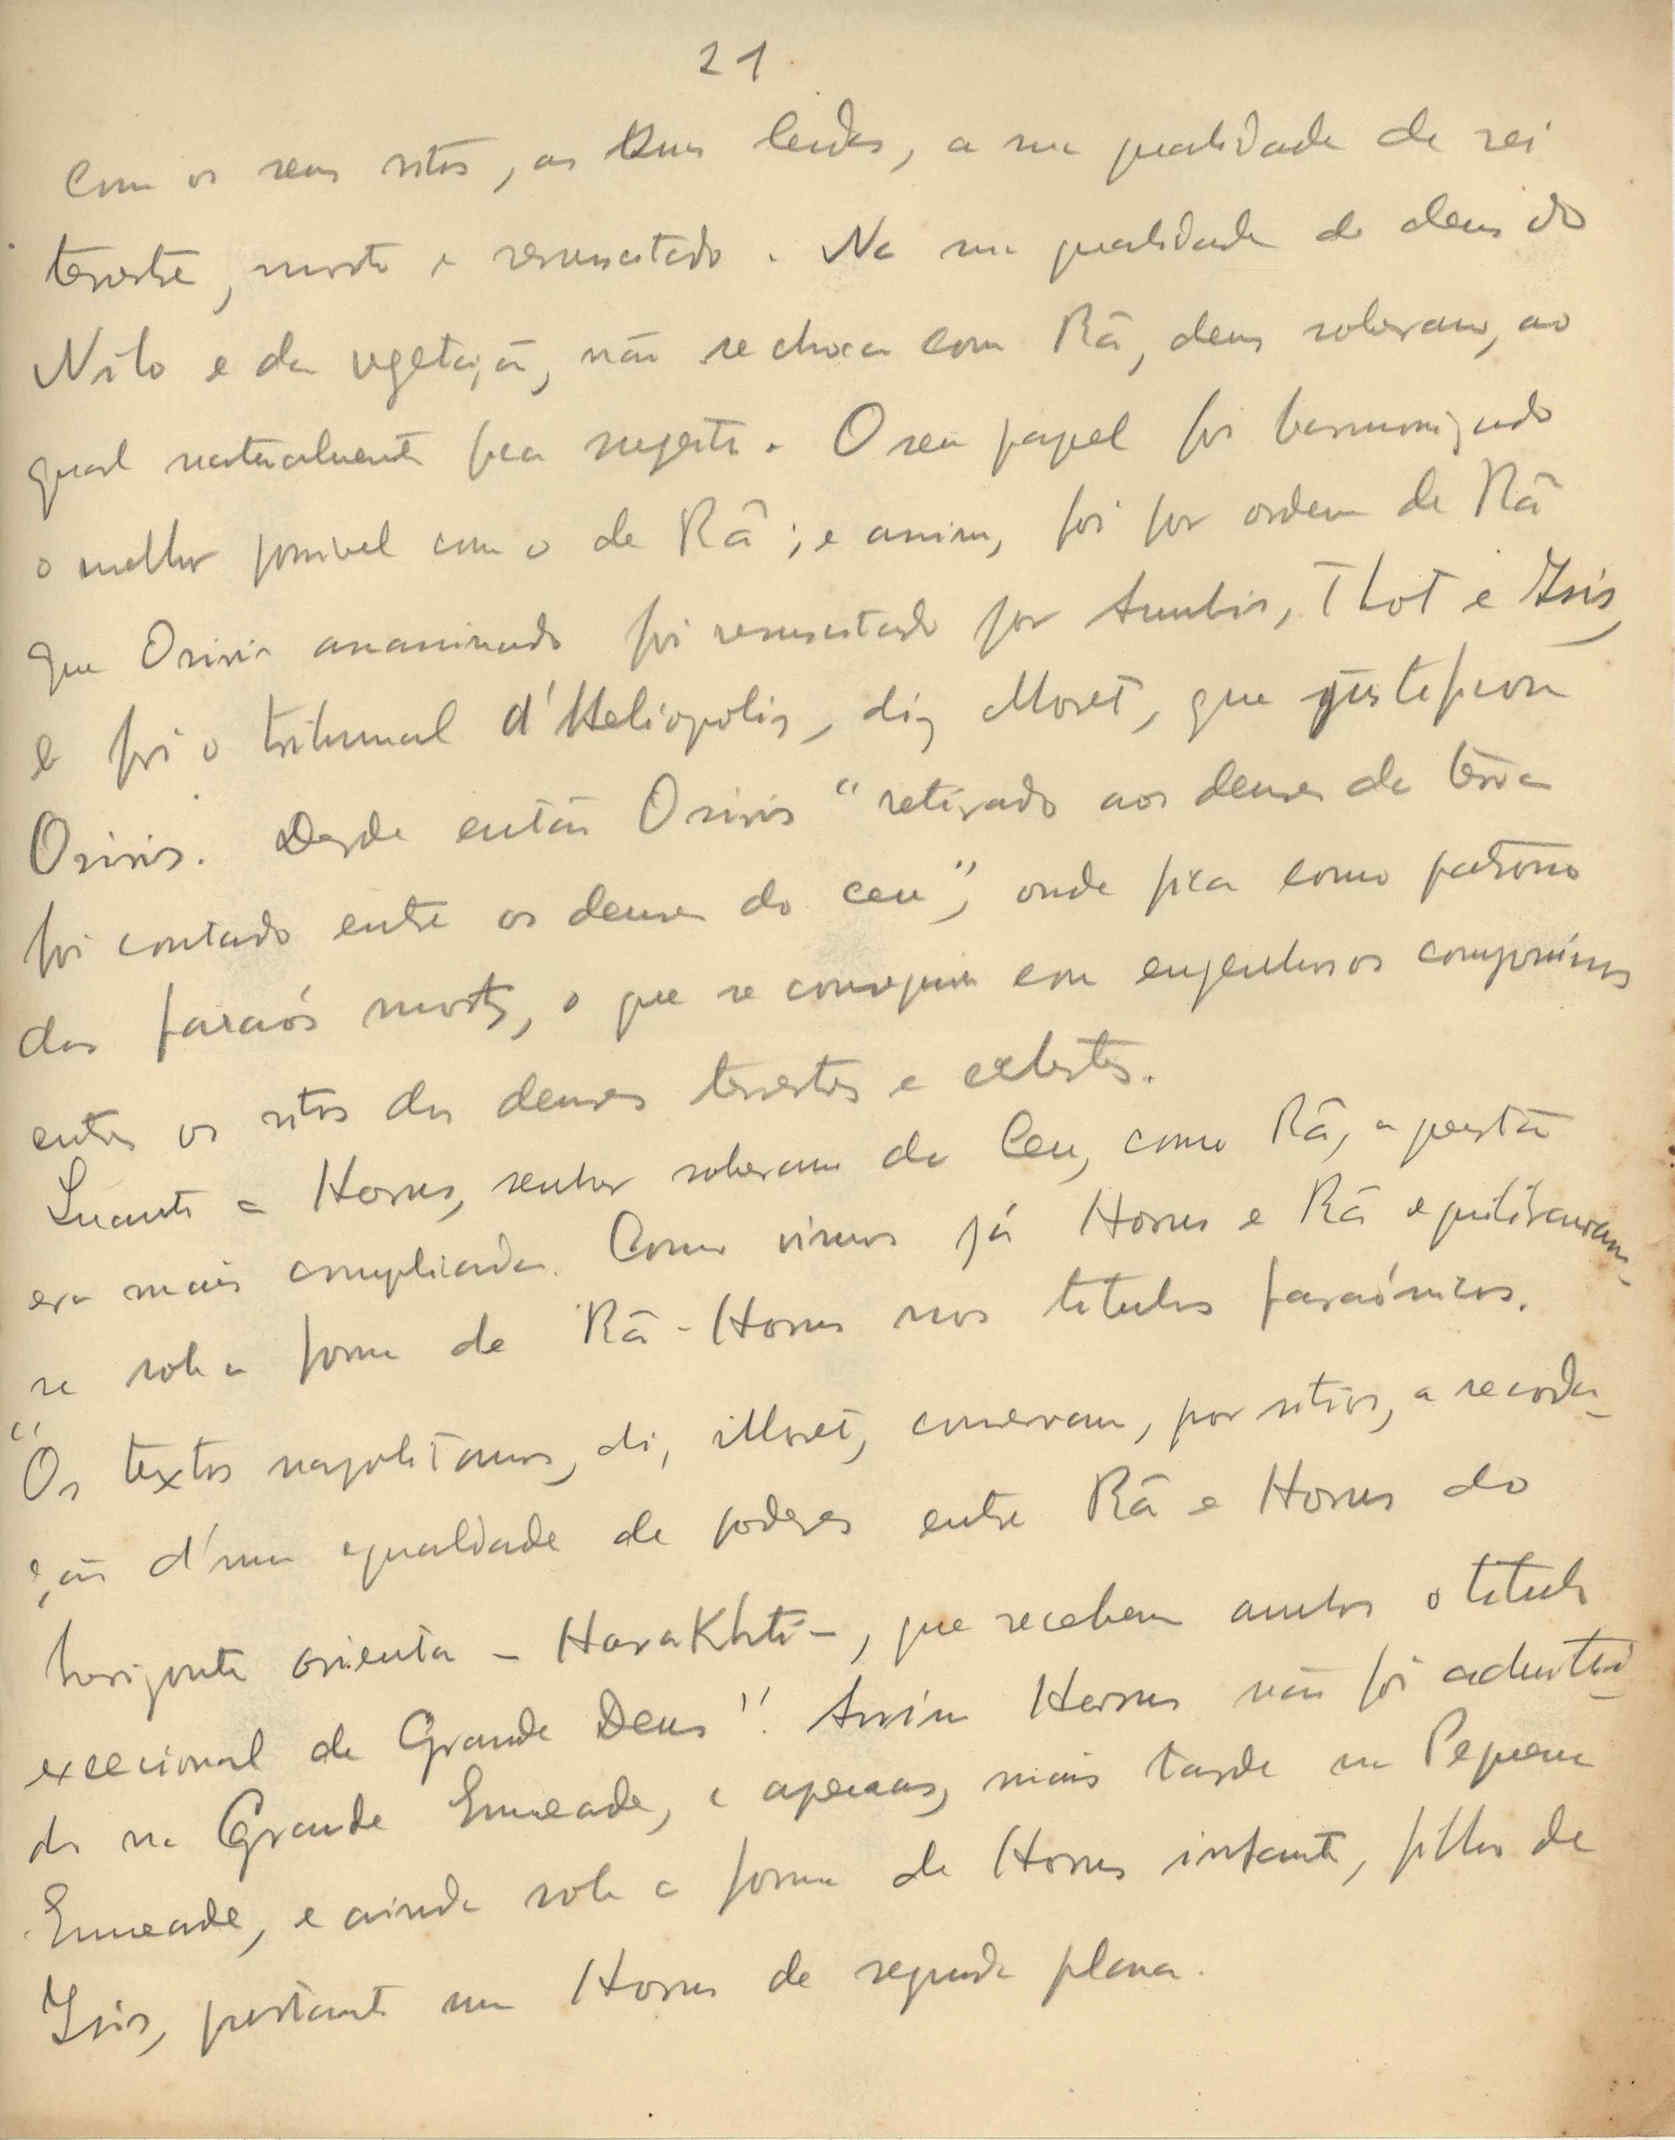 21
com os seus ritos, as suas lendas, a sua qualidade de rei
terrestre, morto e ressuscitado. Na sua qualidade de deus do
Nilo e da vegetação, não se choca com Râ, deus soberano, ao
qual naturalmente fica sujeito. O seu papel foi harmonizado
o melhor possivel com o de Râ; e assim, foi por ordem de Râ
que Osiris assassinado foi ressuscitado por Anubis, Thot e Isis,
e foi o tribunal d'Heliopolis, diz Moret, que justificou
Osiris. Desde então Osiris "retirado aos deuses da terra
foi contado entre os deuses do ceu", onde fica como patrono
dos faraós mortos, o que se conseguiu com engenhosos compromissos
entre os ritos dos deuses terrestres e celestes.
Quanto a Horus, senhor soberano do Ceu, como Râ, a questão
era mais complicada. Como vimos já Horus e Râ equilibraram-
se sob a forma de Râ-Horus nos titulos faraónicos.
"Os textos napolitanos, diz Moret, conservam, por sitios, a recorda-
ção d'uma egualdade de poderes entre Râ e Horus do
horizonte orienta - HaraKhti -, que recebem ambos o titulo
excecional de Grande Deus". Assim Horus não foi admiti-
do na Grande Enneade, e apenas, mais tarde na Pequena
Enneade, e ainda sob a forma de Horus infante, filho de
Isis, portanto um Horus de segundo plana.